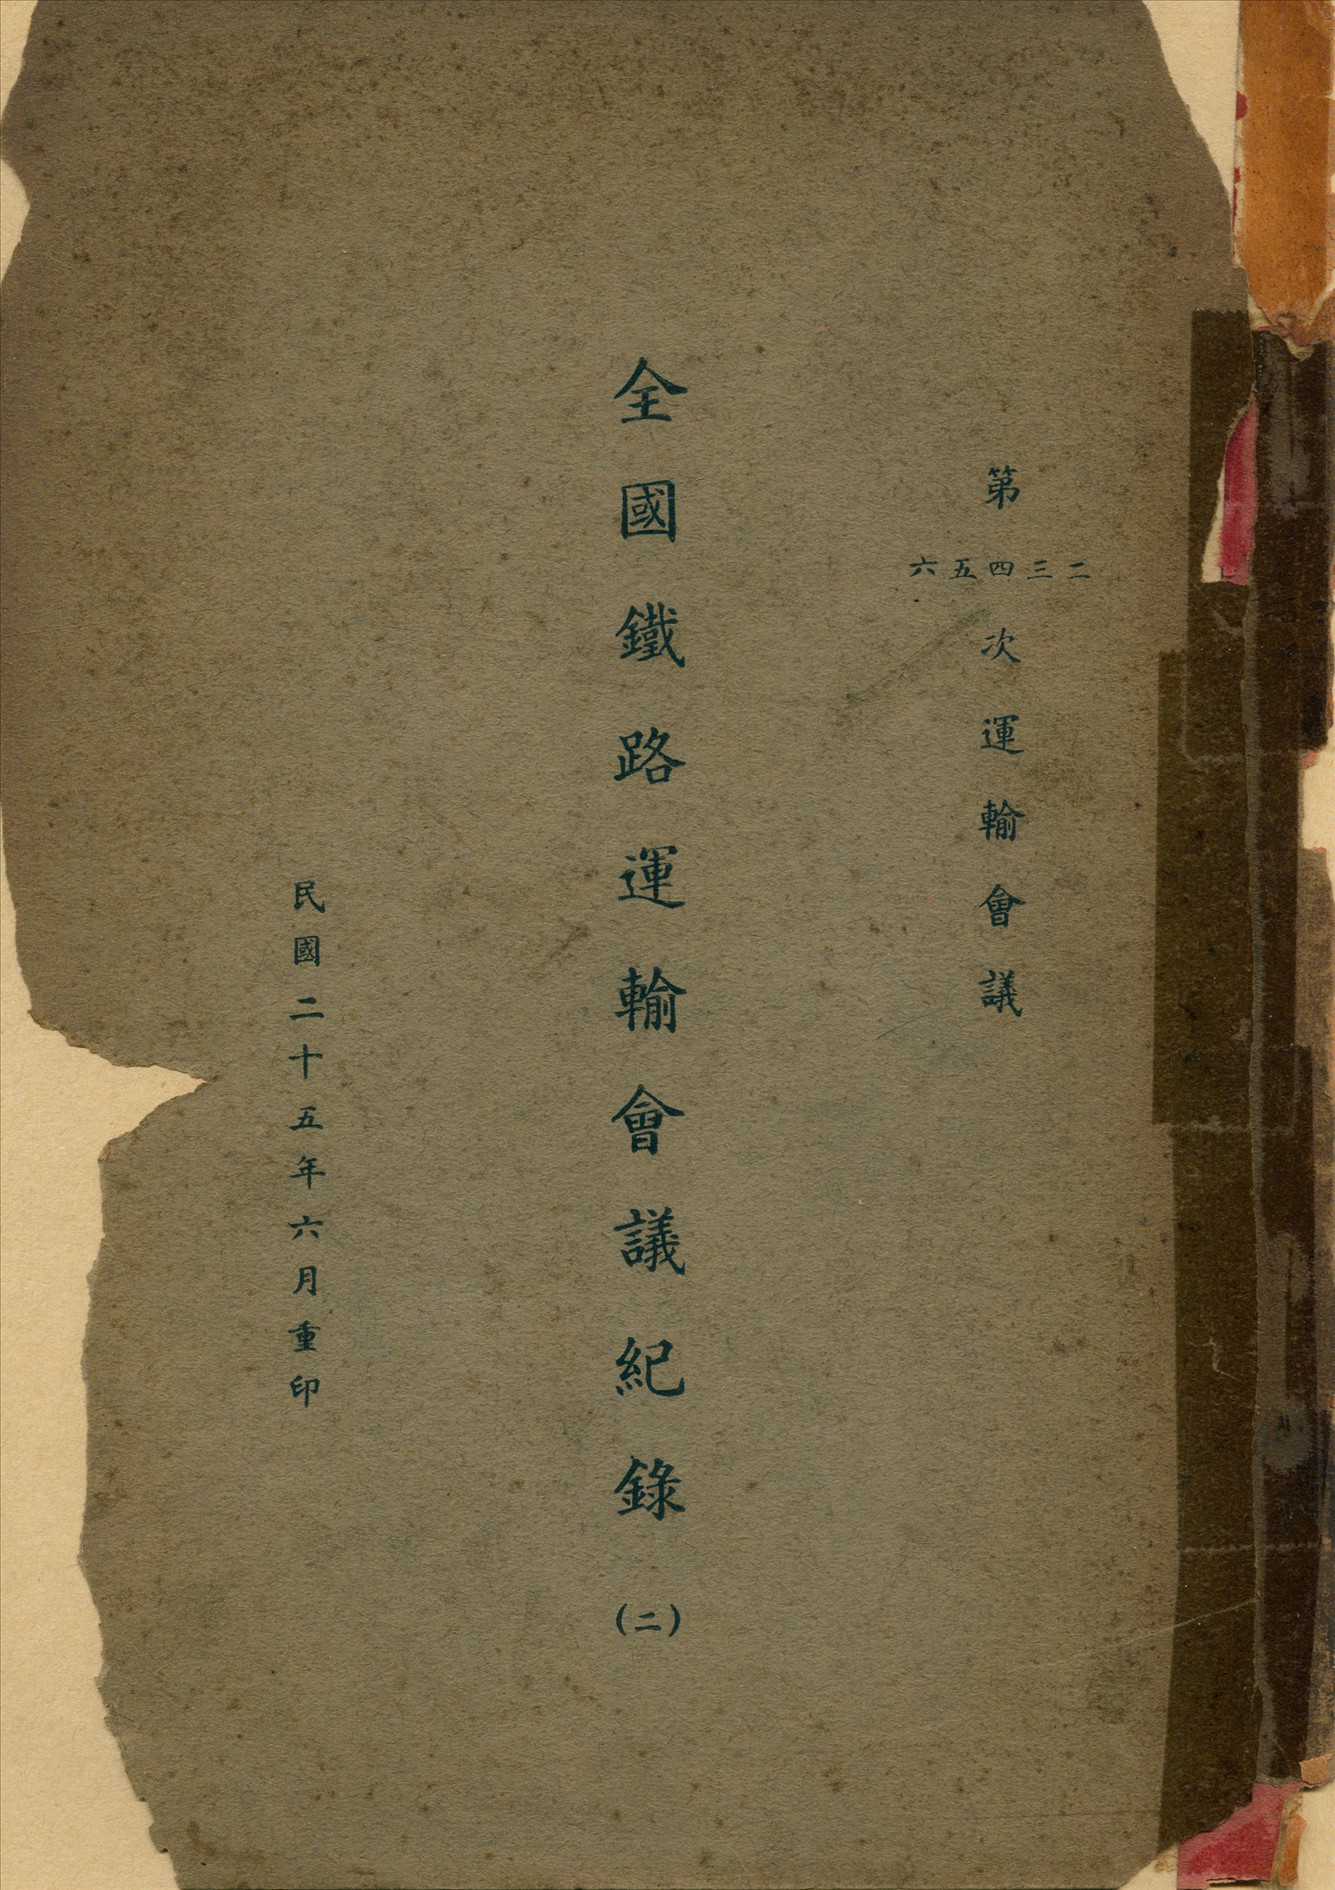 第二三四五六次運輸會議
全國鐵路運輸會議紀錄(二)
民國二十五年六月重印